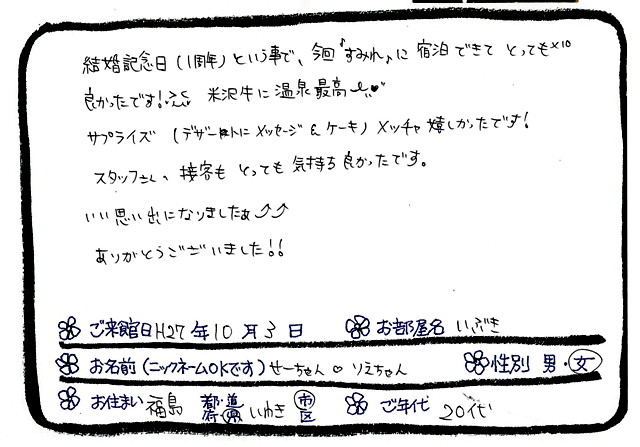 結婚記念日(1周年)という事で、今回"すみれ"に宿泊できてとっても×10
良かったです! 米沢牛に温泉最高
サプライズ (デザートにメッセージ & ケーキ) メッチャ嬉しかったです!
スタッフさんの接客もとっても気持ち良かったです。
いい思い出になりましたぁ⤴⤴
ありがとうございました!!
ご来館日 H27年10月3日 お部屋名 いぶき
お名前(ニックネームOKです) せーちゃん ♡ りえちゃん 性別 男・女
お住まい 福島 都・道 府・県 いわき 市 区 ご年代 20代